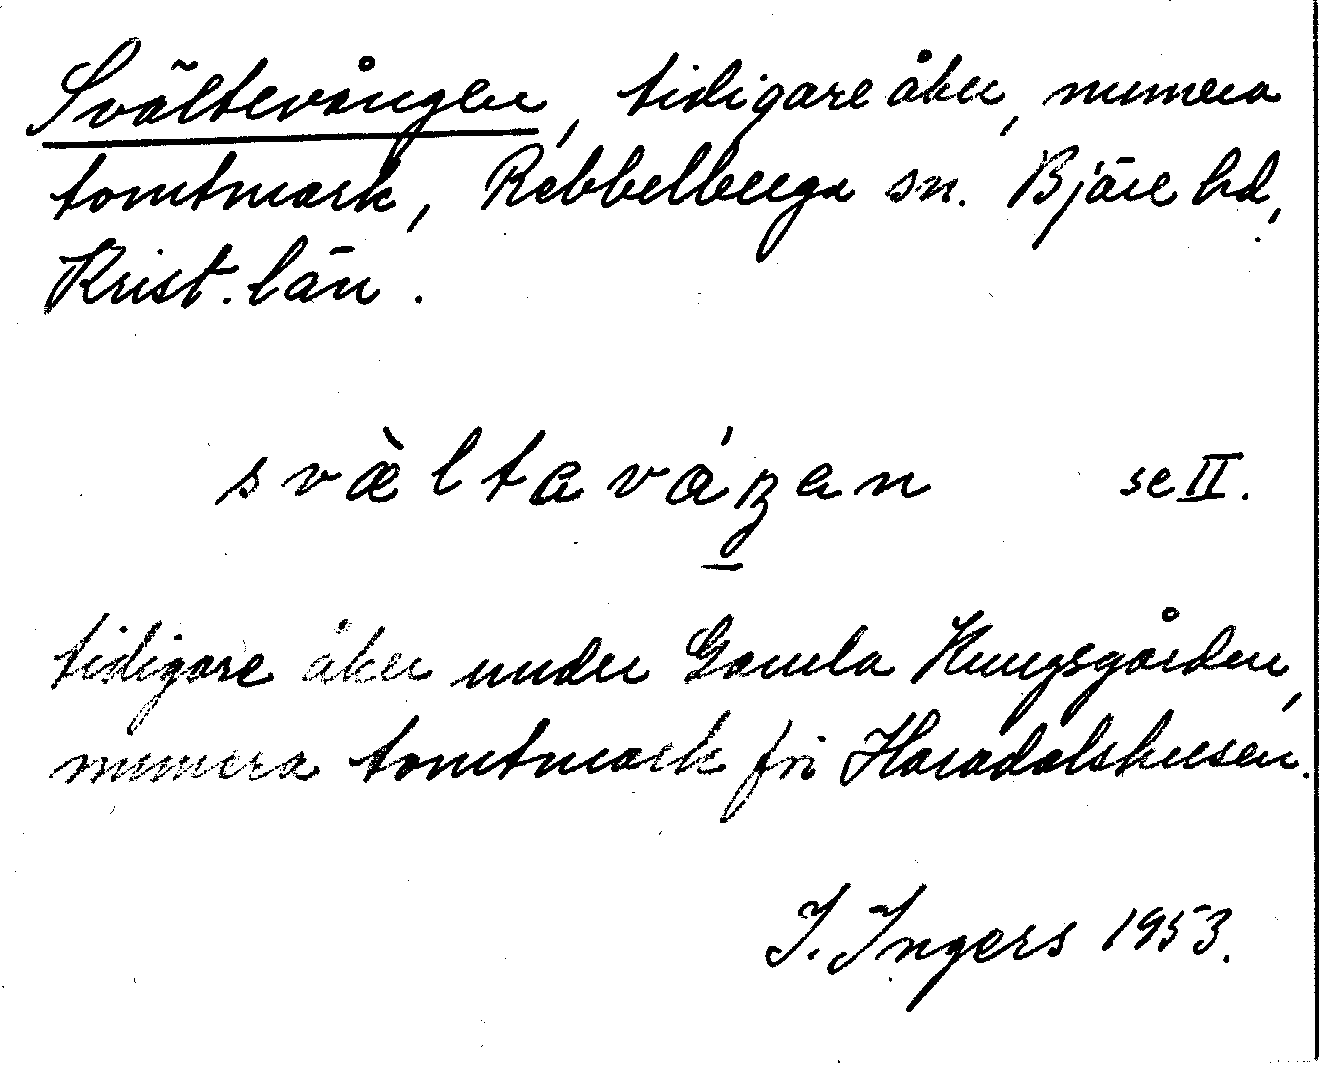 Svältevången, tidigare åker, numera
tomtmark, Rebbelberga sn. Bjäre hd,
Krist. län.
svæ̀ltaváŋan se II.
tidigare åker under Gamla Kungsgården,
numera tomtmark för Haradalshusen.
I. Ingers 1953.